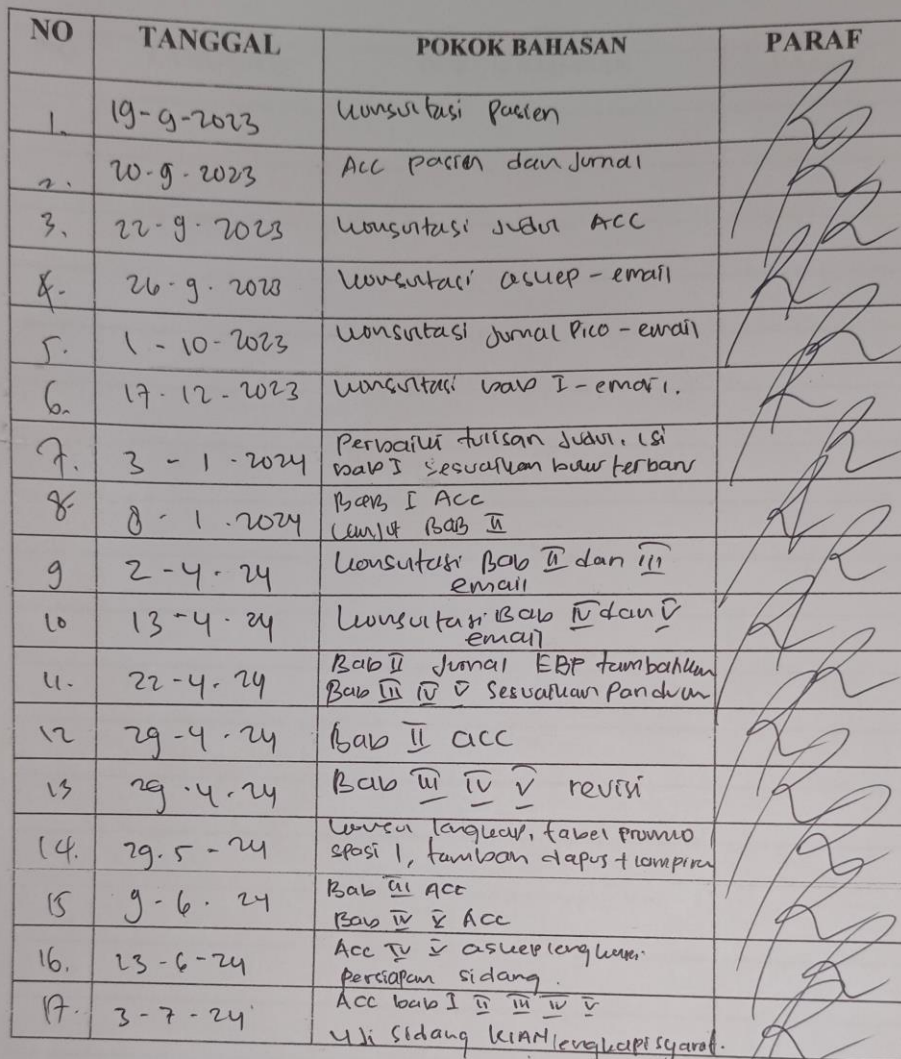 NO TANGGAL POKOK BAHASAN PARAF
1. 19-9-2023 Konsultasi Pasien
2. 20-9-2023 ACC pasien dan Jurnal
3. 22-9-2023 Konsultasi Judul ACC
4. 26-9-2023 Konsultasi askep - email
5. 1-10-2023 Konsultasi Jurnal Pico - email
6. 17-12-2023 Konsultasi bab I - email.
7. 3-1-2024 Perbaiki tulisan Judul, isi
bab I Sesuaikan buku terbaru
8. 8-1-2024 BAB I ACC
Lanjut BAB II
9 2-4-24 Konsultasi Bab II dan III
email
10 13-4-24 Konsultasi Bab IV dan V
email
11. 22-4-24 Bab II Jurnal EBP tambahkan
Bab III IV V Sesuaikan Panduan
12 29-4-24 Bab II acc
13 29-4-24 Bab III IV V revisi
14. 29-5-24 lengkap, tabel
spasi 1, dapus + lampiran
15 9-6-24 Bab III Acc
Bab IV V Acc
16. 23-6-24 Acc IV V askep
persiapan sidang.
17. 3-7-24 Acc bab I II III IV V
Uji Sidang KIAN lengkapi syarat.